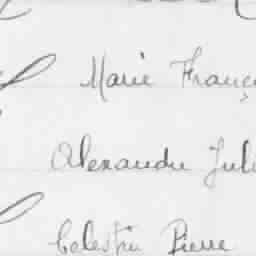 Marie Franç
Alexandre Juli
Celestin Pierre